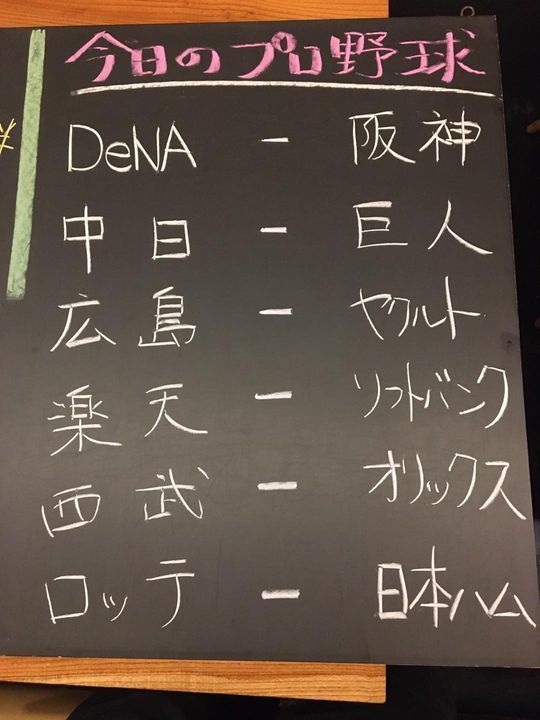 今日のプロ野球
DeNA - 阪神
中日 - 巨人
広島 - ヤクルト
楽天 - ソフトバンク
西武 - オリックス
ロッテ - 日本ハム